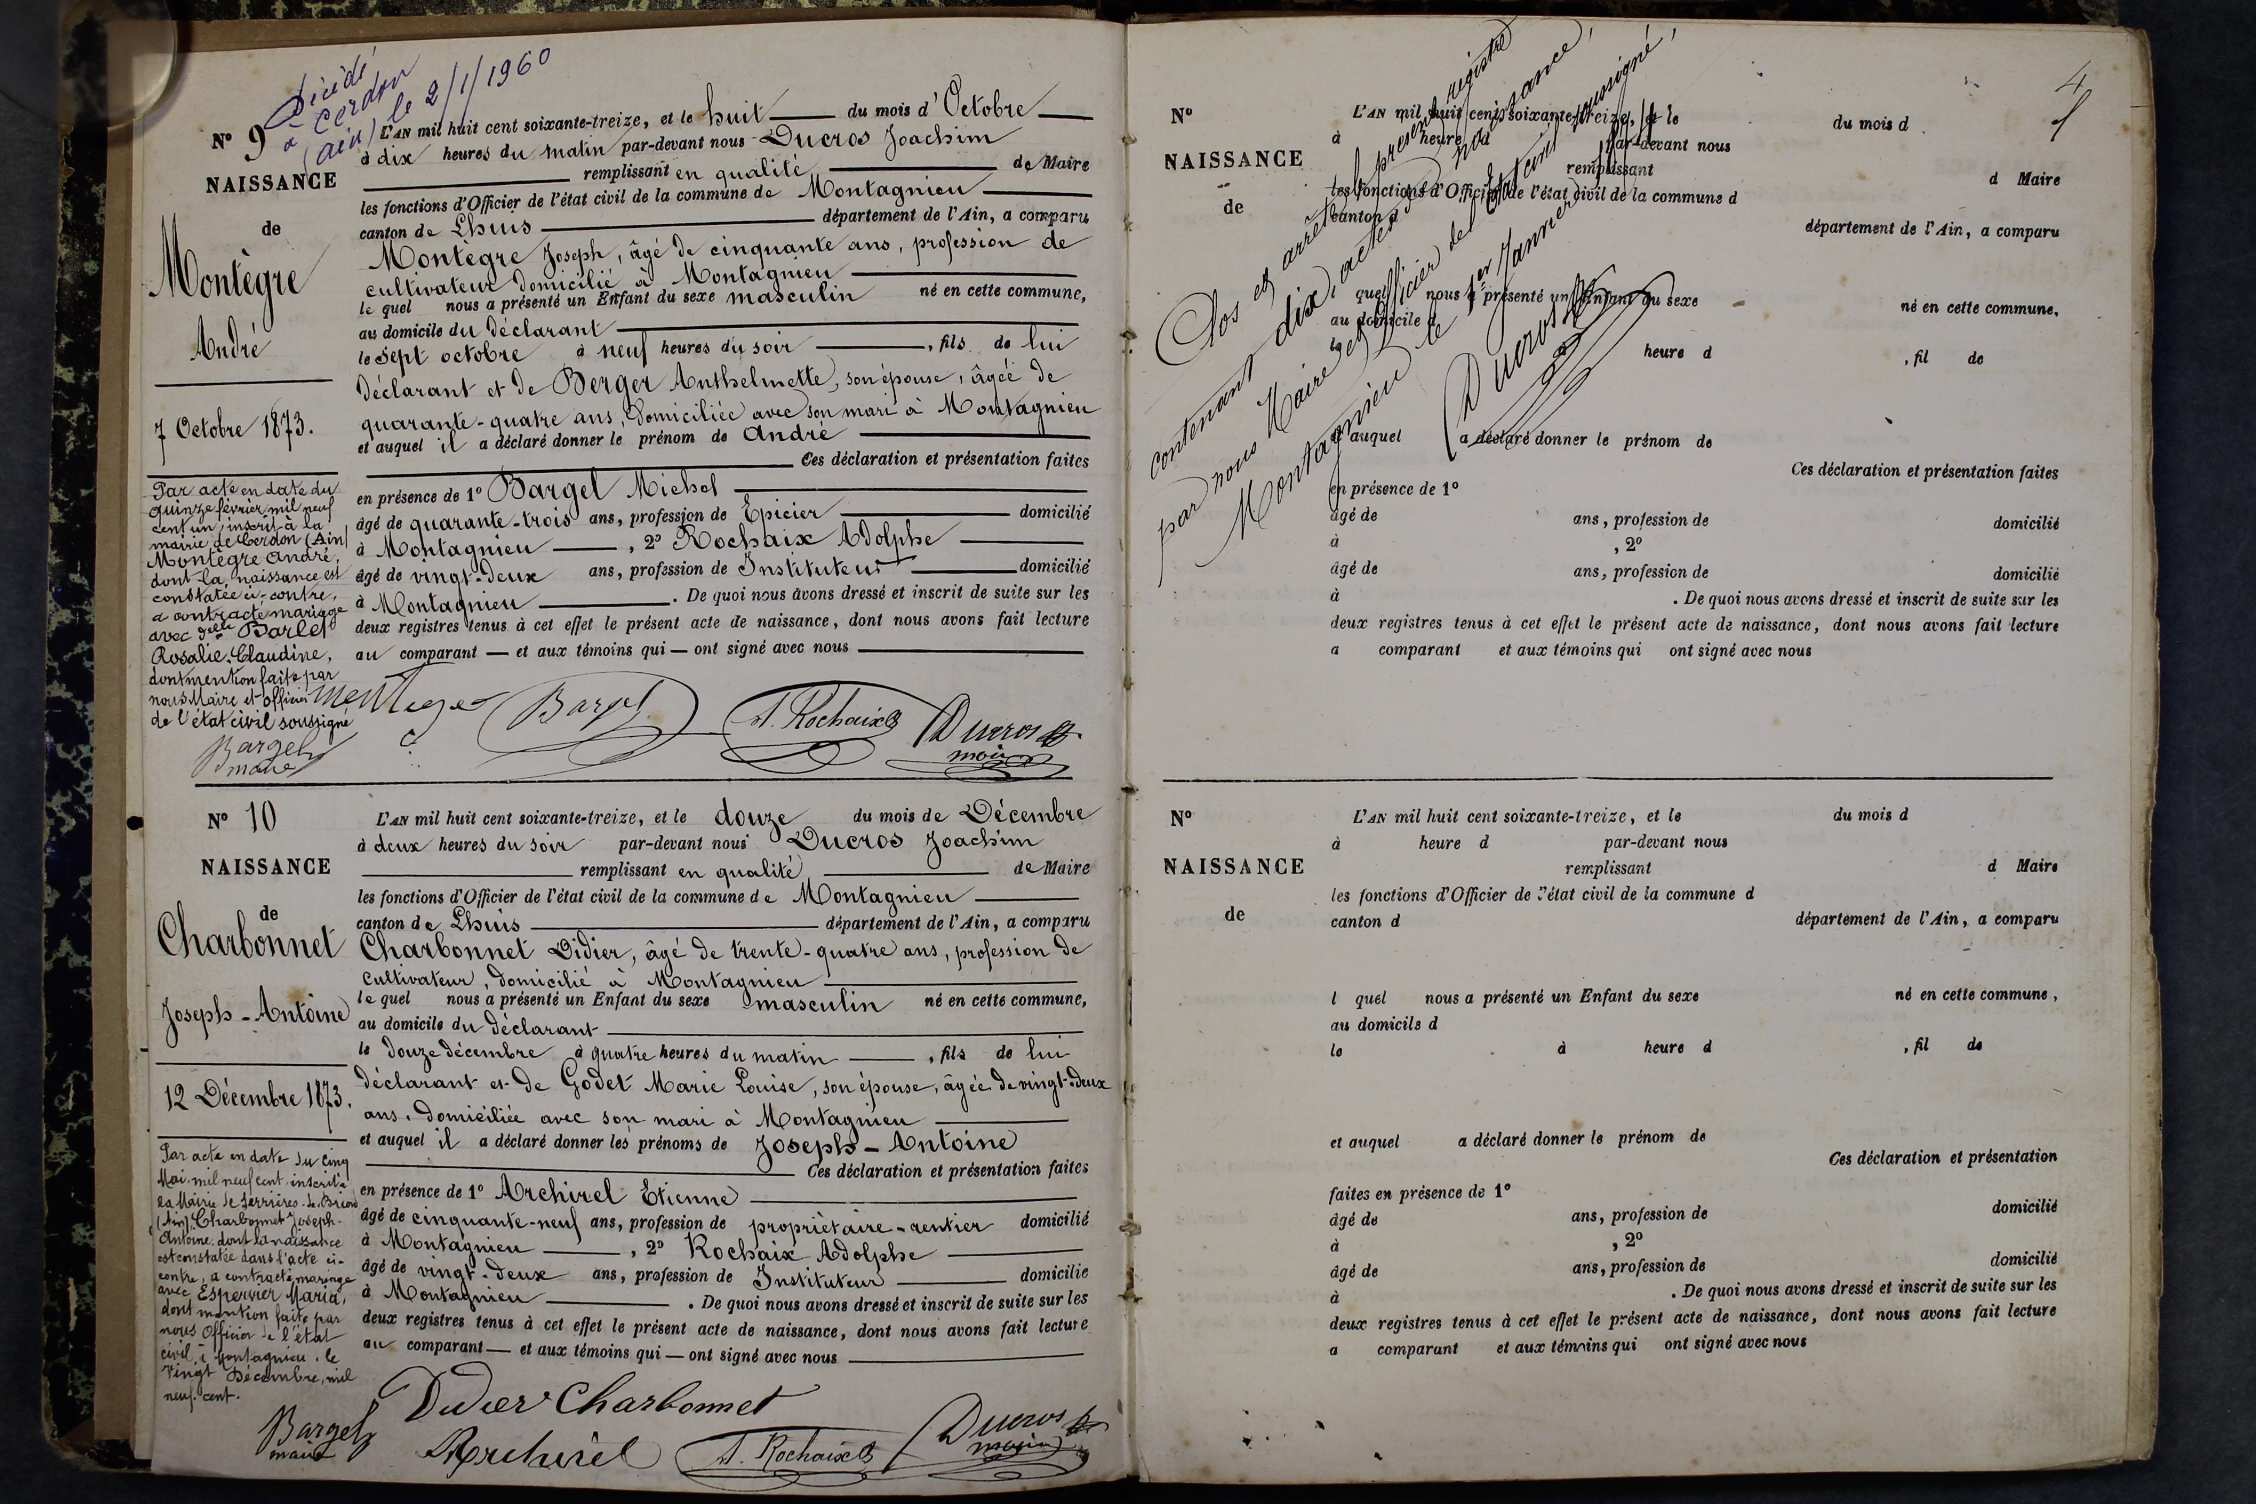 Décédé
à Cerdon
(ain) le 2/1/1960
N° 9
NAISSANCE
de
Montègre
André
7 Octobre 1873.
L'AN mil huit cent soixante-treize, et le huit du mois d'Octobre
à dix heures du matin par-devant nous Ducros Joachim
remplissant en qualité de Maire
les fonctions d'Officier de l'état civil de la commune de Montagnieu
canton de Lhuis département de l'Ain, a comparu
Montègre Joseph, âgé de cinquante ans, profession de
cultivateur domicilié à Montagnieu
le quel nous a présenté un Enfant du sexe masculin né en cette commune,
au domicile du déclarant
le sept octobre à neuf heures du soir, fils de lui
déclarant et de Berger Anthelmette, son épouse, âgée de
quarante-quatre ans, domiciliée avec son mari à Montagnieu
et auquel il a déclaré donner le prénom de André
Ces déclaration et présentation faites
en présence de 1° Bargel Michel
âgé de quarante-trois ans, profession de Epicier domicilié
à Montagnieu, 2° Rochaix Adolphe
âgé de vingt-deux ans, profession de Instituteur domicilié
à Montagnieu. De quoi nous avons dressé et inscrit de suite sur les
deux registres tenus à cet effet le présent acte de naissance, dont nous avons fait lecture
au comparant — et aux témoins qui — ont signé avec nous
Par acte en date du
quinze février mil neuf
cent un, inscrit à la
mairie de Cerdon (Ain)
Montègre André,
dont la naissance est
constatée ci-contre,
a contracté mariage
avec Delle Barlet
Rosalie-Claudine,
dont mention faite par
nous Maire et officier
de l'état civil soussigné
Bargel
maire
Bargel
A. Rochaix
Ducros
N° 10
NAISSANCE
de
Charbonnet
Joseph-Antoine
12 Décembre 1873.
L'AN mil huit cent soixante-treize, et le douze du mois de Décembre
à deux heures du soir par-devant nous Ducros Joachim
remplissant en qualité de Maire
les fonctions d'Officier de l'état civil de la commune de Montagnieu
canton de Lhuis département de l'Ain, a comparu
Charbonnet Didier, âgé de trente-quatre ans, profession de
cultivateur, domicilié à Montagnieu
le quel nous a présenté un Enfant du sexe masculin né en cette commune,
au domicile du déclarant
le douze décembre à quatre heures du matin, fils de lui
déclarant et de Godet Marie Louise, son épouse, âgée de vingt-deux
ans, domiciliée avec son mari à Montagnieu
et auquel il a déclaré donner les prénoms de Joseph-Antoine
Ces déclaration et présentation faites
en présence de 1° Archirel Etienne
âgé de cinquante-neuf ans, profession de propriétaire-rentier domicilié
à Montagnieu, 2° Rochaix Adolphe
âgé de vingt-deux ans, profession de Instituteur domicilié
à Montagnieu. De quoi nous avons dressé et inscrit de suite sur les
deux registres tenus à cet effet le présent acte de naissance, dont nous avons fait lecture
au comparant — et aux témoins qui — ont signé avec nous
Par acte en date du cinq
Mai mil neuf cent inscrit à
la Mairie de Serrières-de-Briord
(Ain) Charbonnet Joseph-
Antoine, dont la naissance
est constatée dans l'acte ci-
contre, a contracté mariage
avec Espervier Maria,
dont mention faite par
nous Officier de l'état
civil, à Montagnieu, le
vingt Décembre, mil
neuf cent.
Bargel
maire
Didier Charbonnet
Archirel
A. Rochaix
Ducros
4
Clos et arrêté le présent registre
contenant dix actes de naissance,
par nous Maire et officier de l'Etat civil soussigné,
Montagnieu le 1er Janvier
Ducros
N°
NAISSANCE
de
L'AN mil huit cent soixante-treize, et le du mois d
à heure par-devant nous
remplissant d Maire
les fonctions d'Officier de l'état civil de la commune d
canton d département de l'Ain, a comparu
quel nous a présenté un Enfant du sexe né en cette commune,
au domicile d
le heure d, fil de
auquel a déclaré donner le prénom de
Ces déclaration et présentation faites
en présence de 1°
âgé de ans, profession de domicilié
à, 2°
âgé de ans, profession de domicilié
à. De quoi nous avons dressé et inscrit de suite sur les
deux registres tenus à cet effet le présent acte de naissance, dont nous avons fait lecture
a comparant et aux témoins qui ont signé avec nous
N°
NAISSANCE
de
L'AN mil huit cent soixante-treize, et le du mois d
à heure d par-devant nous
remplissant d Maire
les fonctions d'Officier de l'état civil de la commune d
canton d département de l'Ain, a comparu
l quel nous a présenté un Enfant du sexe né en cette commune,
au domicile d
le à heure d, fil de
et auquel a déclaré donner le prénom de
Ces déclaration et présentation
faites en présence de 1°
âgé de ans, profession de domicilié
à, 2°
âgé de ans, profession de domicilié
à. De quoi nous avons dressé et inscrit de suite sur les
deux registres tenus à cet effet le présent acte de naissance, dont nous avons fait lecture
a comparant et aux témoins qui ont signé avec nous